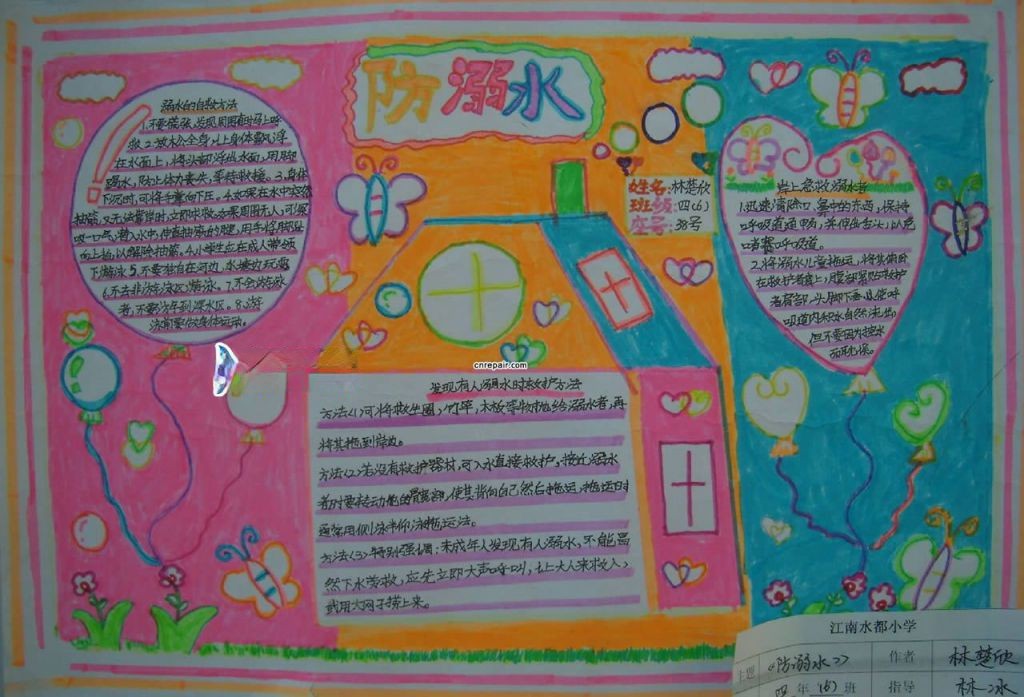 防溺水
姓名:林楚欣
班级:四(6)
座号:38号
溺水的自救方法
1.不要慌张,发现周围有时马上呼
救 2.放松全身,让身体飘浮
在水面上,将头部浮出水面,用脚
踢水,防止体力丧失,等待救援。3.身体
下沉时,可将手掌向下压。4.如果在水中突然
抽筋,又无法靠岸时,立即求救。如果周围无人,可深
吸一口气潜入水中,伸直抽筋的腿,用手将脚趾
向上扳,以解除抽筋。4.小学生应在成人带领
下游泳 5.不要独自在河边、水塘边玩耍
6.不去非游泳区游泳。7.不会游泳
者,不要游到深水区。8.游
泳前要做身体运动。
岸上急救溺水者
1.迅速清除口、鼻中的东西,保持
呼吸道通畅,并使出舌头,以免
堵塞呼吸道。
2.将溺水儿童拖运,将其俯卧
在救护者肩上,腹部紧贴救护
者肩部,头脚下垂,以使呼
吸道内积水自然流出。
但不要因为控水
而耽误。
cnrepair.com
发现有人溺水时救护方法
方法(1)可将救生圈,竹竿,木板等物抛给溺水者,再
将其拖到岸边。
方法(2)若没有救护器材,可入水直接救护,接近溺水
者时要转动他的髋部,使其背向自己然后拖运,拖运时
通常用侧泳或仰泳拖运法。
方法(3)特别强调:未成年人发现有人溺水,不能冒
然下水营救,应先立即大声呼叫,让大人来救人,
或用大网子捞上来。
江南水都小学
主题 《防溺水》 作者 林楚欣
四年(6)班 指导 林冰